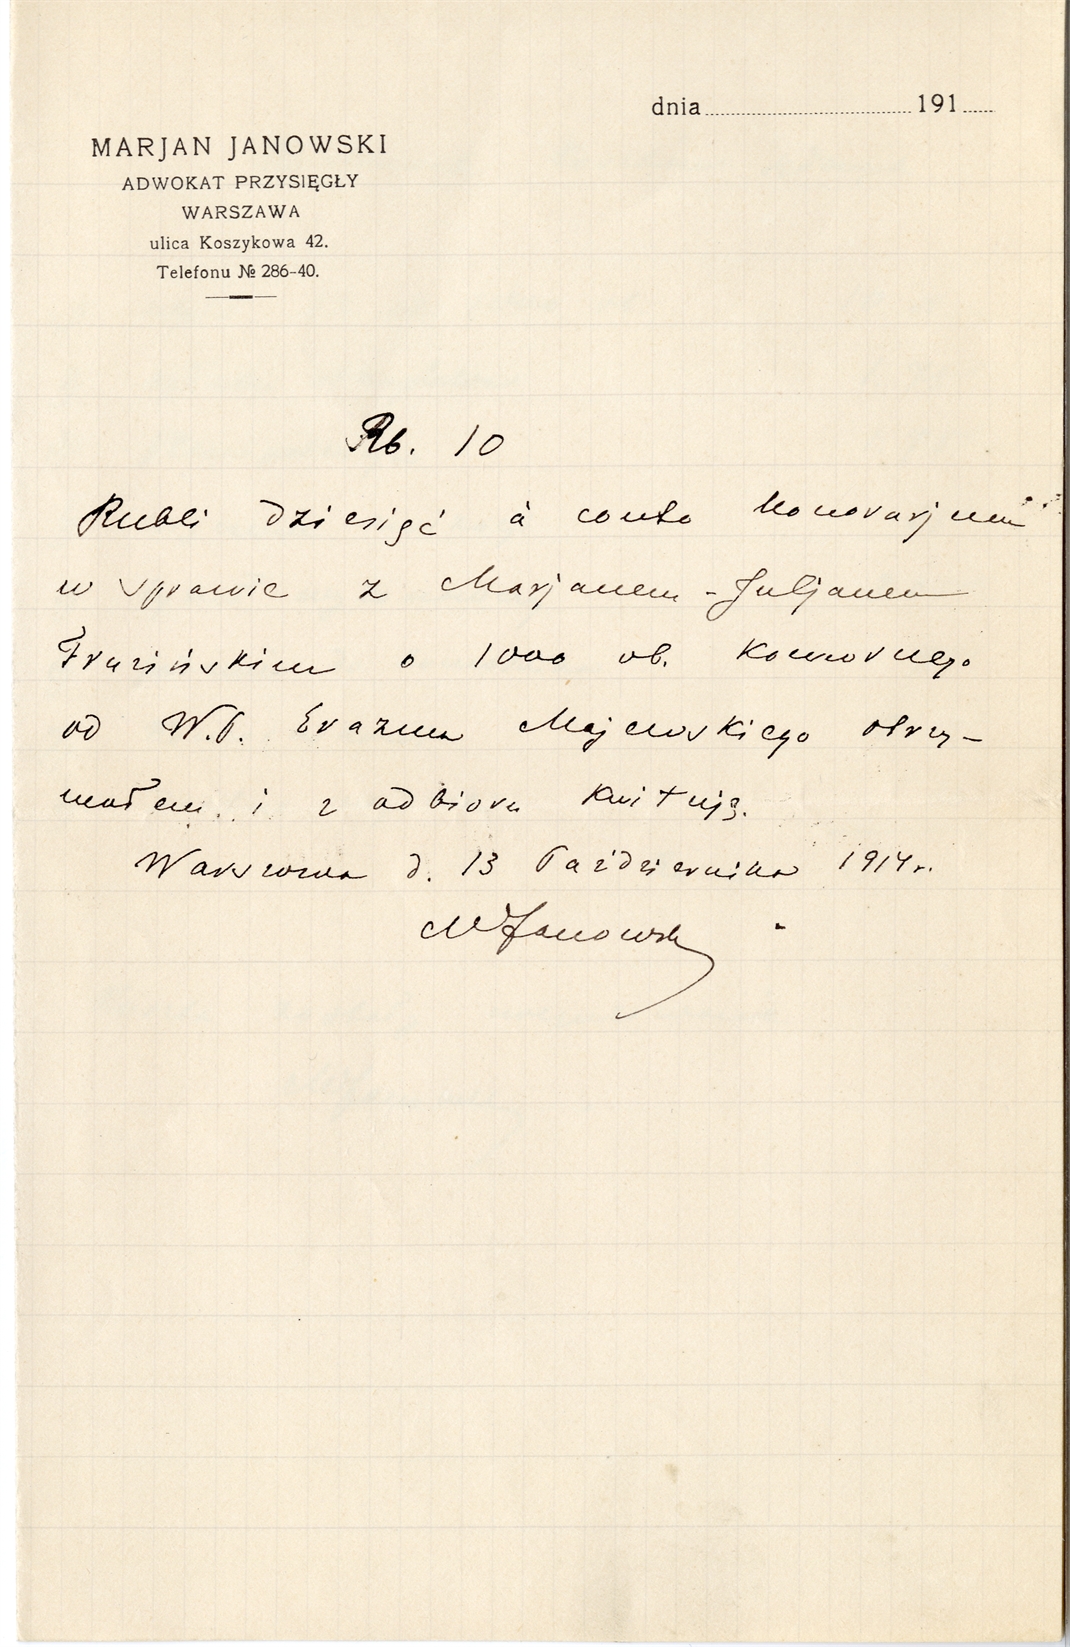 dnia 191
MARJAN JANOWSKI
ADWOKAT PRZYSIĘGŁY
WARSZAWA
ulica Koszykowa 42.
Telefonu № 286-40.
Rb. 10
Rubli dziesięć à conto honorarjum
w sprawie z Marjanem-Juljanem
o 1000 rb. komornego
od W.P. Erazma Majewskiego otrzy-
małem i z odbioru kwituję.
Warszawa d. 13 Października 1914 r.
MJanowski